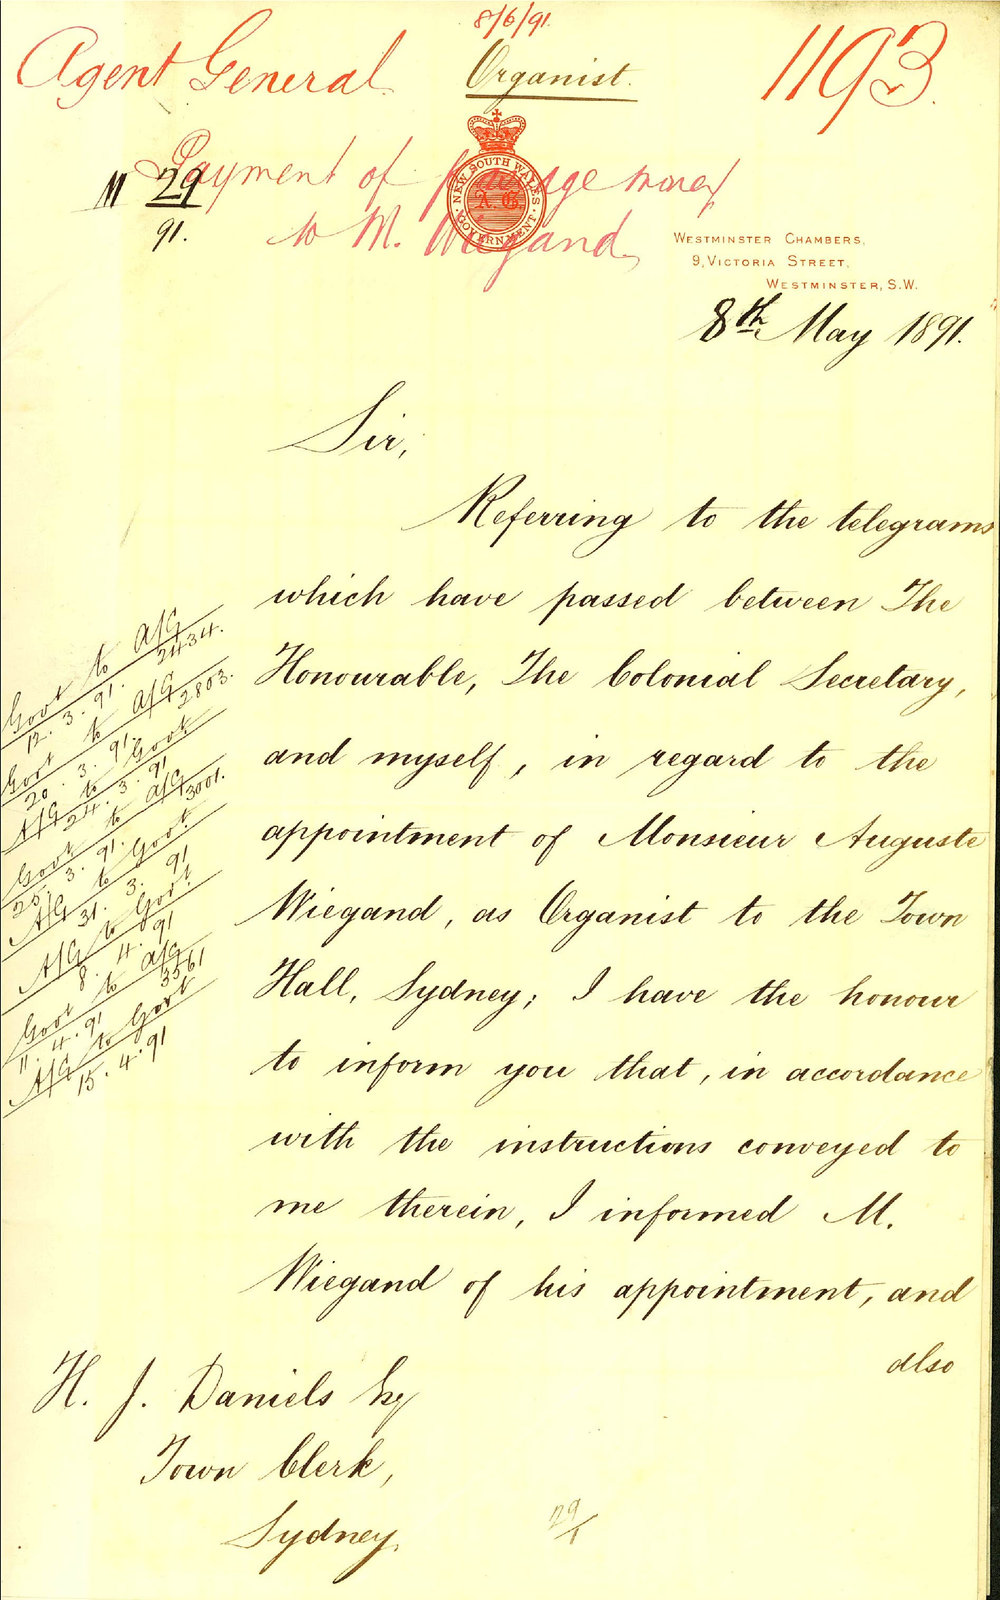 8/6/91.
Agent General
Organist.
1193.
Payment of passage money
to M. Wiegand
M 29
91.
NEW SOUTH WALES
A.G.
GOVERNMENT
WESTMINSTER CHAMBERS,
9, VICTORIA STREET,
WESTMINSTER, S.W.
8th May 1891.
Sir,
Referring to the telegrams
which have passed between The
Honourable, The Colonial Secretary,
and myself, in regard to the
appointment of Monsieur Auguste
Wiegand, as Organist to the Town
Hall, Sydney; I have the honour
to inform you that, in accordance
with the instructions conveyed to
me therein, I informed M.
Wiegand of his appointment, and
also
Govt to A/G
12.3.91. 2434.
Govt to A/G
20.3.91. 2803.
A/G to Govt
24.3.91
Govt to A/G
25.3.91. 3001.
A/G to Govt
31.3.91
A/G to Govt
8.4.91
Govt to A/G
11.4.91 3561
A/G to Govt
15.4.91
H. J. Daniels Esq
Town Clerk,
Sydney.